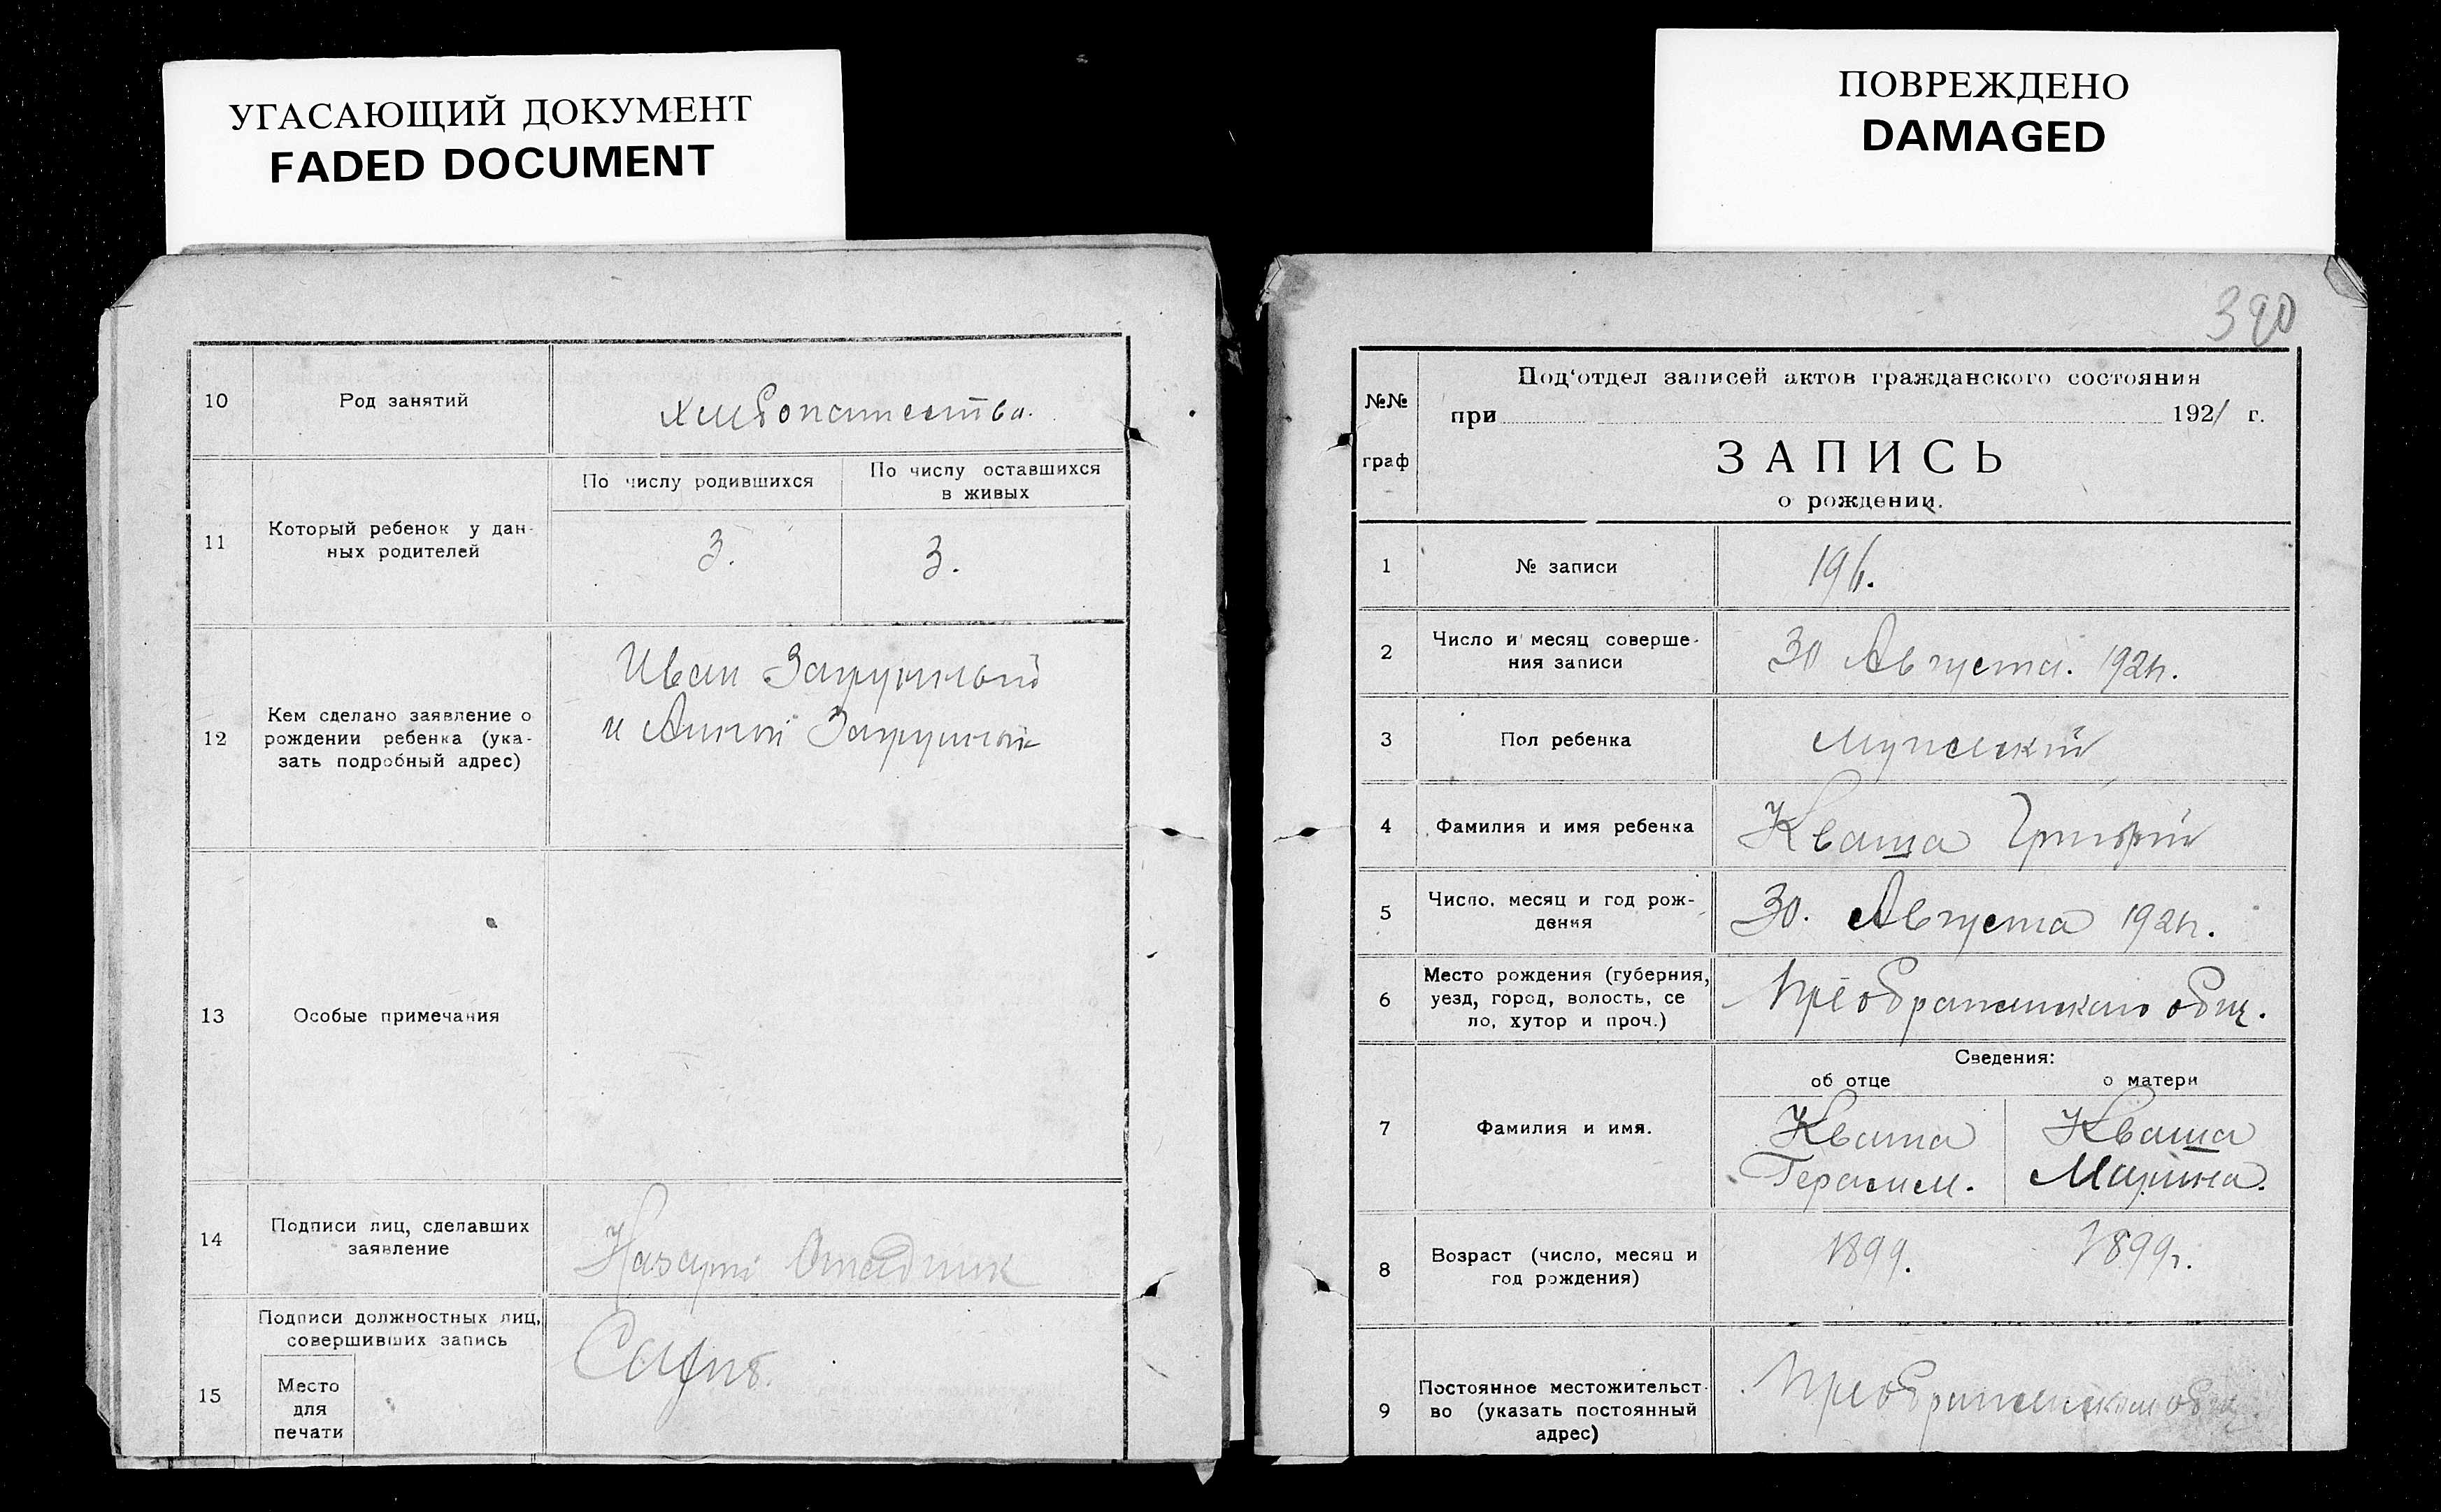 УГАСАЮЩИЙ ДОКУМЕНТ
FADED DOCUMENT
10
Род занятий
11
Который ребенок у дан-
ных родителей
По числу родившихся
По числу оставшихся
в живых
3.
3.
12
Кем сделано заявление о
рождении ребенка (ука-
зать подробный адрес)
Иван
и
13
Особые примечания
14
Подписи лиц, сделавших
заявление
15
Подписи должностных лиц,
совершивших запись
Место
для
печати
ПОВРЕЖДЕНО
DAMAGED
390
№№
граф
Под'отдел записей актов гражданского состояния
при 1921 г.
ЗАПИСЬ
о рождении.
1
№ записи
196.
2
Число и месяц соверше-
ния записи
30 Августа. 1921г.
3
Пол ребенка
Мужский
4
Фамилия и имя ребенка
Кваша Григорий
5
Число, месяц и год рож-
дения
30. Августа 1921г.
6
Место рождения (губерния,
уезд, город, волость, се
ло, хутор и проч.)
Преображенскаго общ.
Сведения:
об отце
о матери
7
Фамилия и имя.
Кваша
Герасим.
Кваша
Марина.
8
Возраст (число, месяц и
год рождения)
1899.
1899г.
9
Постоянное местожительст-
во (указать постоянный
адрес)